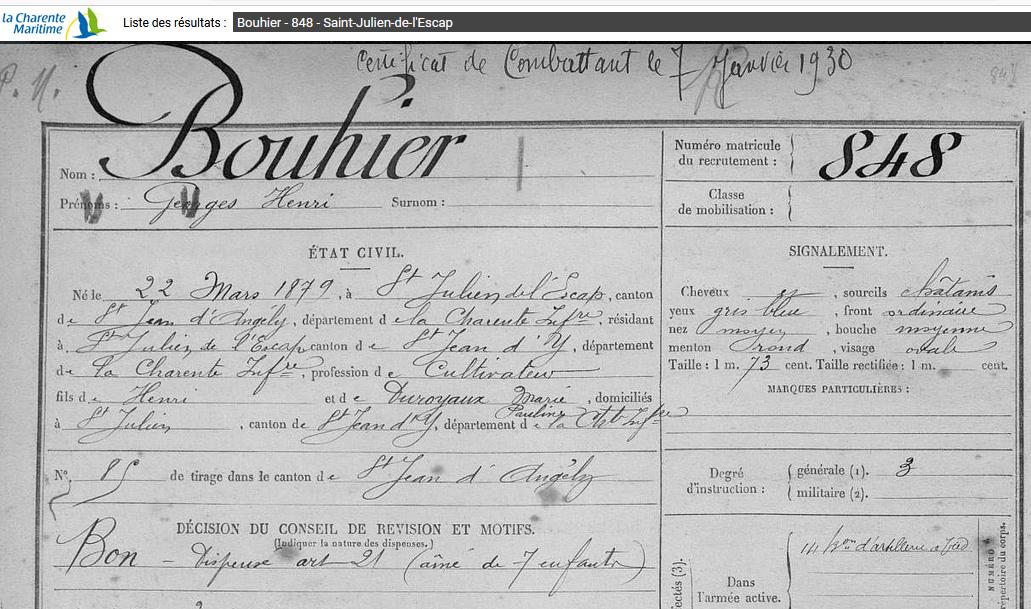 la Charente
Maritime
Liste des résultats : Bouhier - 848 - Saint-Julien-de-l'Escap
Certificat de Combattant le 7 Janvier 1930
848
P. N.
Nom : Bouhier
Prénoms : Georges Henri Surnom :
Numéro matricule
du recrutement : 848
Classe
de mobilisation :
ÉTAT CIVIL.
Né le 22 Mars 1879, à St Julien de l'Escap, canton
de St Jean d'Angély, département de la Charente Infre, résidant
à St Julien de l'Escap canton de St Jean d'Y, département
de la Charente Infre, profession de Cultivateur
fils de Henri et de Duroyaux Marie, domiciliés
Pauline
à St Julien, canton de St Jean d'Y, département de la Chte Infre
N° 85 de tirage dans le canton de St Jean d'Angély
DÉCISION DU CONSEIL DE REVISION ET MOTIFS.
(Indiquer la nature des dispenses.)
Bon - Dispense art 21 (aîné de 7 enfants)
SIGNALEMENT.
Cheveux et, sourcils châtains
yeux gris bleu, front ordinaire
nez moyen, bouche moyenne
menton rond, visage ovale
Taille : 1 m. 73 cent. Taille rectifiée : 1 m. cent.
MARQUES PARTICULIÈRES :
Degré
d'instruction :
générale (1). 3
militaire (2).
Dans
l'armée active.
14 Bon d'artillerie à pied
NUMÉRO
répertoire du corps.